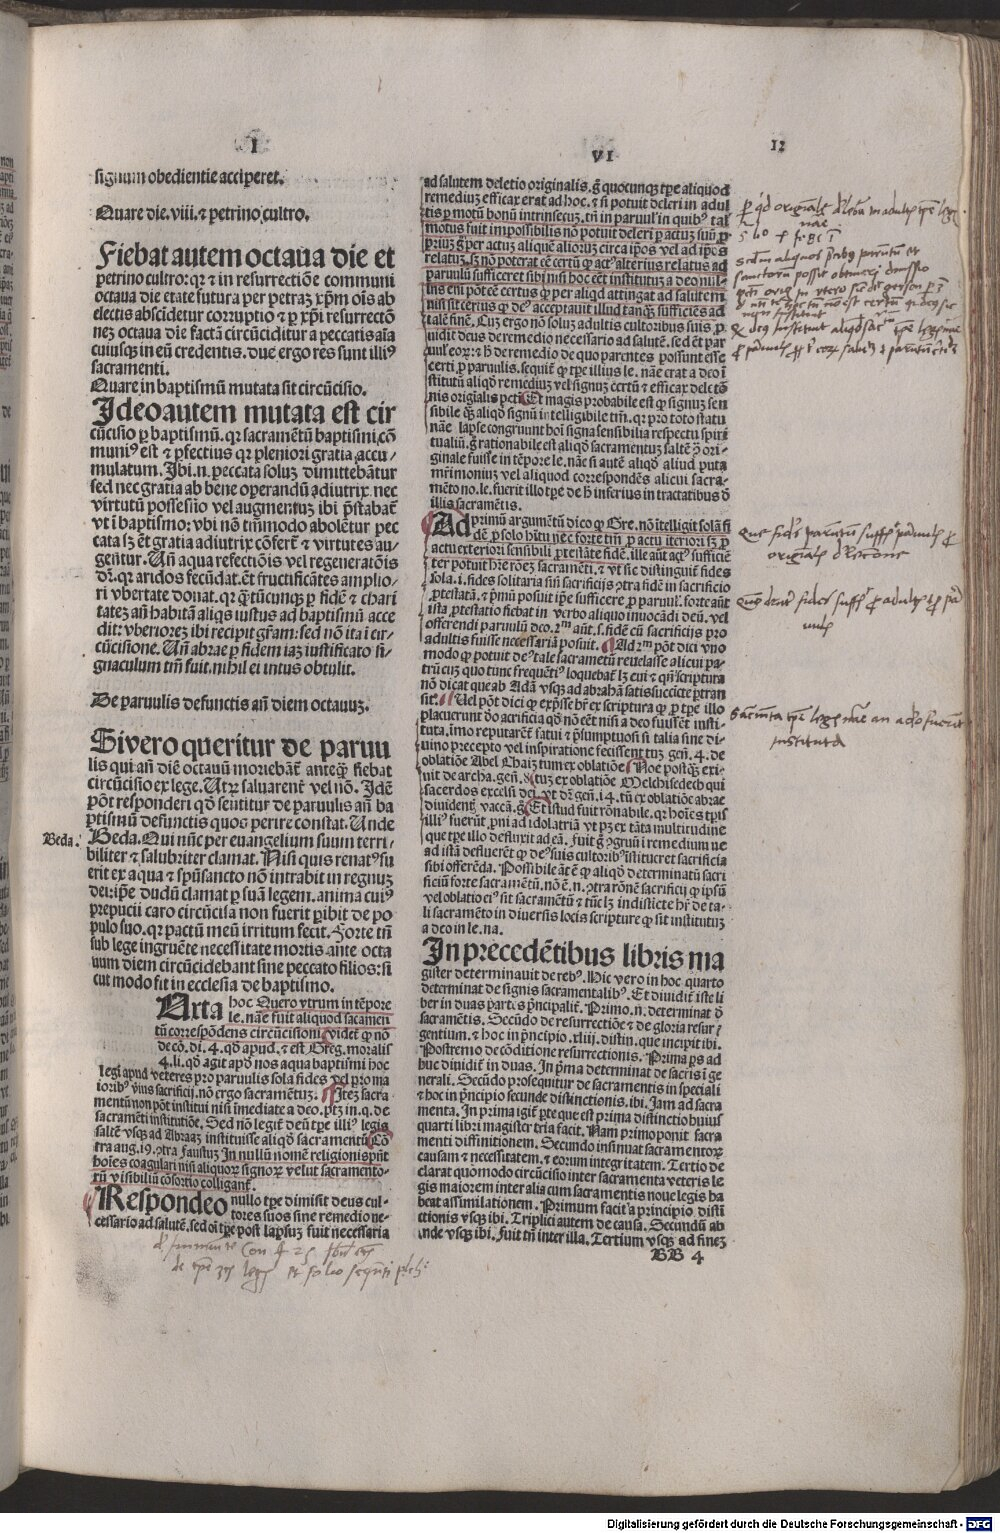 I
VI
12
signum obedientie acciperet.
Quare die. viii. ⁊ petrino cultro.
Fiebat autem octaua die et
petrino cultro: qꝛ ⁊ in resurrectiõe communi
octaua die etate futura per petraꝫ xp̃m oĩs ab
electis abscidetur corruptio ⁊ ꝑ xp̃i resurrectõ
neꝫ octaua die factã circũciditur a peccatis aĩa
cuiusqꝫ in eũ credentis. due ergo res sunt illiꝰ
sacramenti.
Quare in baptismũ mutata sit circũcisio.
Ideo autem mutata est cir
cũcisio ꝑ baptismũ. qꝛ sacramẽtũ baptismi cõ
muniꝰ est ⁊ ꝑfectius qꝛ pleniori gratia accu⸗
mulatum. Ibi .n. peccata soluꝫ dimittebãtur
sed nec gratia ab bene operandũ adiutrix. nec
virtutũ possessio vel augmentuꝫ ibi p̃stabat̃
vt ĩ baptismo: vbi nõ tm̃modo abolẽtur pec
cata sꝫ ẽt gratia adiutrix cõfert̃ ⁊ virtutes au⸗
gentur. Uñ aqua refectiõis vel regeneratiõis
dr̃. qꝛ aridos fecũdat. ẽt fructificãtes amplio⸗
ri vbertate donat. qꝛ q̃tũcunqꝫ ꝑ fidẽ ⁊ chari
tateꝫ añ habitã aliqs iustus ad baptismũ acce
dit: vberioreꝫ ibi recipit gr̃am: sed nõ ita ĩ cir⸗
cũcisione. Uñ abrae ꝑ fidem iaꝫ iustificato si⸗
gnaculum tm̃ fuit. nihil ei intus obtulit.
De paruulis defunctis añ diem octauuꝫ.
Si vero queritur de paruu
lis qui añ diẽ octauũ moriebãt̃ anteq̃ꝫ fiebat
circũcisio ex lege. Utꝛꝫ saluarent̃ vel nõ. Idẽ
põt responderi qd̃ sentitur de paruulis añ ba
ptismũ defunctis quos perire constat. Unde
Beda.
Beda. Qui nũc per euangelium suum terri⸗
biliter ⁊ salubriter clamat. Nisi quis renatꝰ fu
erit ex aqua ⁊ spũsancto nõ intrabit in regnuꝫ
dei: ip̃e dudũ clamat ꝑ suã legem. anima cuiꝰ
prepucii caro circũcisa non fuerit ꝑibit de po
pulo suo. qꝛ pactũ meũ irritum fecit. Forte tñ
sub lege ingruẽte necessitate mortis ante octa
uum diem circũcidebant sine peccato filios: si
cut modo fit in ecclesia de baptismo.
Iuxta hoc Quero vtrum in tẽpore
le. nãe fuit aliquod sacramen
tũ correspõdens circũcisioni videt̃ ꝙ nõ
de cõ. di. 4. qd̃ apud. ⁊ est Greg. moralis
4. li. qd̃ agit apd̃ nos aqua baptismi hoc
legi apud veteres pro paruulis sola fides vel pro ma
ioribꝰ v̾us sacrificij. nõ ergo sacramẽtuꝫ. Iteꝫ sacra
mentũ non põt institui nisi ĩmediate a deo. ptꝫ in. q. de
sacramẽti institutiõe. Sed nõ legit̃ deũ tp̃e illiꝰ legis
saltẽ vsqꝫ ad Abraaꝫ instituisse aliqd̃ sacramentũ. Cõ
tra aug. 19. ↄtra faustuꝫ In nullũ nomẽ religionis p̃nt
hoĩes coagulari nisi aliquoꝛ signoꝛ velut sacramento⸗
rũ visibiliũ cõsortio colligant̃.
Respondeo nullo tp̃e dimisit deus cul⸗
tores suos sine remedio ne⸗
cessario ad salutẽ. sed oĩ tp̃e post lapsuꝫ fuit necessaria
ad salutem deletio originalis. g̃ quocunqꝫ tp̃e aliquod
remediuꝫ efficax erat ad hoc. ⁊ si potuit deleri in adul
tis ꝑ motũ bonũ intrinsecuꝫ. tñ in paruulꝭ in quibꝰ talꝭ
motus fuit impossibilis nõ potuit deleri ꝑ actuꝫ suũ ꝓ
priuꝫ g̃ per actuꝫ aliquẽ alioꝛuꝫ circa ip̃os vel ad ip̃os
relatuꝫ. sꝫ nõ poterat eẽ certũ ꝙ actꝰ alterius relatus ad
paruulũ sufficeret sibi nisi hoc eẽt institutuꝫ a deo nul⸗
lus eni põt eẽ certus ꝙ per aliqd̃ attingat ad salutem
nisi sit certus ꝙ deꝰ acceptauit illud tanq̃ꝫ sufficiẽs ad
talẽ finẽ. Cuꝫ ergo nõ soluꝫ adultis cultoribus suis ꝓ⸗
uidit deus de remedio necessario ad salutẽ. sed ẽt par
uulꝭ eoꝛ: ⁊ h̃ de remedio de quo parentes possunt esse
certi ꝓ paruulis. sequit̃ ꝙ tp̃e illius le. nãe erat a deo ĩ
stitutũ aliqd̃ remediuꝫ vel signuꝫ certũ ⁊ efficax delctõ
nis origĩalis pctĩ. Et magis probabile est ꝙ signuꝫ sen
sibile q̃ꝫ aliqd̃ signũ ĩtelligibile tm̃. qꝛ pro toto statu
nãe lapse congruunt hoĩ signa sensibilia respectu spiri
tualiũ. g̃ rationabile est aliqd̃ sacramentuꝫ saltẽ ↄ̃ ori⸗
ginale fuisse in tẽpore le. nãe si autẽ aliqd̃ aliud puta
mr̃imoniuꝫ vel aliquod correspondẽs alicui sacra⸗
mẽto no. le. fuerit illo tp̃e de h̃ inferius in tractatibus d̃
illis sacramẽtis.
Ad primũ argumẽtũ dico ꝙ Gre. nõ ĩtelligit solã fi
dẽ ꝓ solo hĩtu nec forte tm̃ ꝓ actu iteriori sꝫ ꝓ
actu exteriori sensibili ꝓtestãte fidẽ. ille aũt actꝰ sufficiẽ
ter potuit hr̃e rõeꝫ sacramẽti. ⁊ vt sic distinguit̃ fides
sola. i. fides solitaria siñ sacrificijs ↄtra fidẽ in sacrificio
ꝓtestatã. ⁊ p̃mũ posuit ip̃e sufficere ꝓ paruulꝭ. forte aũt
ista ꝓtestatio fiebat in verbo aliquo inuocãdi deũ. vel
offerendi paruulũ deo. 2ᵐ aũt. s. fidẽ cũ sacrificijs pro
adultis fuisse necessariã posuit. Ad 2ᵐ põt dici vno
modo ꝙ potuit deꝰ tale sacrametũ reuelasse alicui pa⸗
trũ cuꝫ quo tunc frequẽtiꝰ loquebat̃ lꝫ eni ⁊ qñ scriptura
nõ dicat que ab Adã vsqꝫ ad abrahã satis succicte ꝑtran
sit. Uel põt dici ꝙ exp̃sse hr̃ ex scriptura ꝙ ꝓ tp̃e illo
placuerunt do acrificia qd̃ nõ eẽt nisi a deo fuissẽt insti⸗
tuta. imo reputarẽt̃ fatui ⁊ p̃sumptuosi si talia sine di⸗
uino precepto vel inspiratione fecissent tuꝫ geñ. 4. de
oblatiõe Abel Chaiꝫ tum ex oblatiõe Noe postq̃ꝫ exi⸗
uit de archa. geñ. 8. tuꝫ ex oblatiõe Melchisedech qui
sacerdos excelsi dei. vt dr̃ geñ. 14. tũ ex oblatiõe abrae
diuidentꝭ vaccã. g̃. Et istud fuit rõnabile. qꝛ hoĩes tp̃is
illiꝰ fuerũt ꝓni ad idolatriã vt pꝫ ex tãta multitudine
que tp̃e illo defluxit ad eã. fuit g̃ ↄgruũ ĩ remediũ ne
ad istã defluerẽt ꝙ deꝰ suis cultoribꝰ ĩstitueret sacrificia
sibi offerẽda. Possibile ãt ẽ ꝙ aliqd̃ determinatũ sacri
ficiũ forte sacramẽtũ. nõ ẽ .n. ↄtra rõnẽ sacrificij ꝙ ip̃sũ
vel oblatio eiꝰ sit sacramẽtũ ⁊ tũc lꝫ indistĩcte hr̃ de ta⸗
li sacramẽto in diuersis locis scripture ꝙ sit institutuꝫ
a deo in le. na.
In precedẽtibus libris ma
gister determinauit de rebꝰ. Hic vero in hoc quarto
determinat de signis sacramentalibꝰ. Et diuidit̃ iste li
ber in duas partes p̃ncipalit̃. Primo .n. determinat d̃
sacramẽtis. Secũdo de resurrectiõe ⁊ de gloria resur⸗
gentium. ⁊ hoc in p̃ncipio. xliij. distin. que incipit ibi.
Postremo de cõditione resurrectionis. Prima ps ad
huc diuidit̃ in duas. In p̃ma determinat de sacris ĩ ge
nerali. Secũdo prosequitur de sacramentis in speciali
⁊ hoc in p̃ncipio secunde distinctionis. ibi. Jam ad sacra
menta. In prima igit̃ ꝑte que est prima distinctio huius
quarti libri magister tria facit. Nam primo ponit sacra
menti diffinitionem. Secundo insinuat sacramentoꝛ
causam ⁊ necessitatem. ⁊ eorum integritatem. Tertio de
clarat quõmodo circũcisio inter sacramenta veteris le
gis maiorem inter alia cum sacramentis noue legis ha
beat assimilationem. Primum facit a principio distin
ctionis vsqꝫ ibi. Triplici autem de causa. Secundũ ab
inde vsqꝫ ibi. Fuit tñ inter illa. Tertium vsqꝫ ad fineꝫ
BB 4
Digitalisierung gefördert durch die Deutsche Forschungsgemeinschaft - DFG